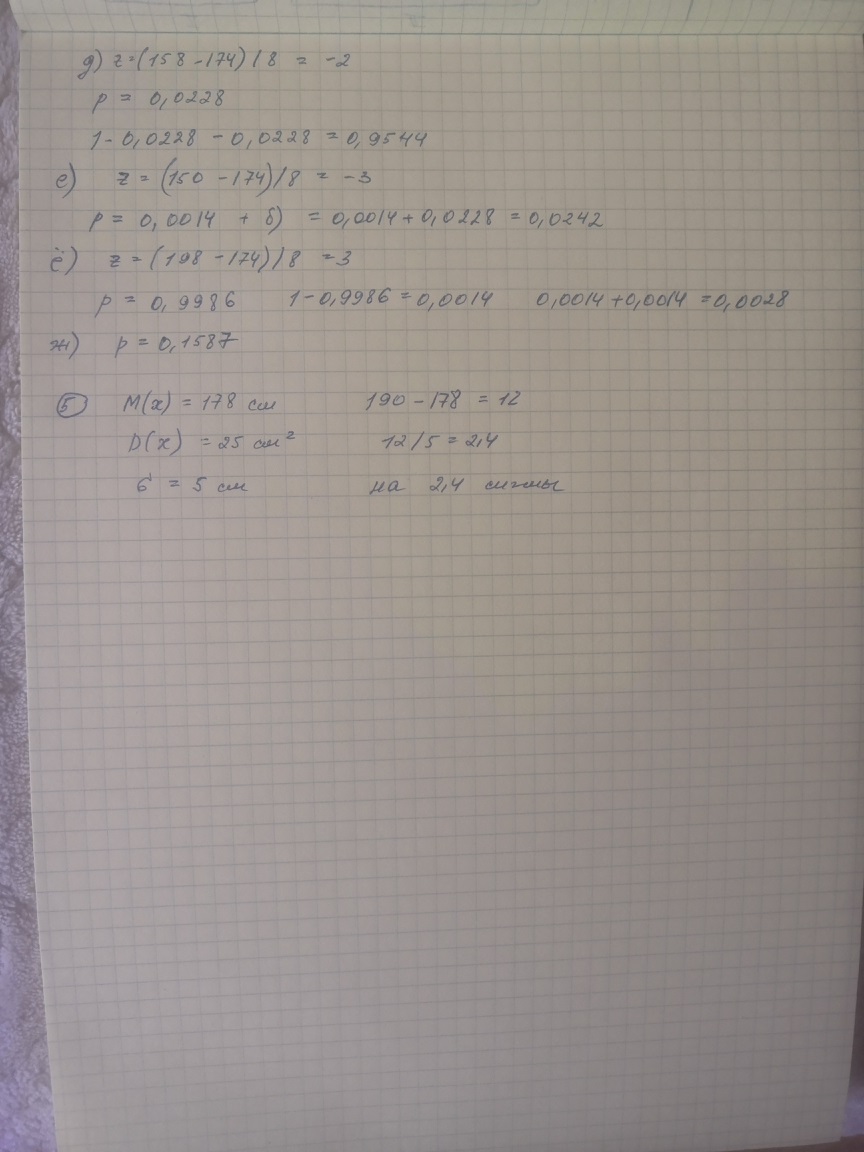 д) z=(158-174)/8 = -2
p = 0,0228
1-0,0228 - 0,0228 = 0,9544
е) z = (150 -174)/8 = -3
p = 0,0014 + б) = 0,0014+0,0228 = 0,0242
ё) z = (198 -174)/8 =3
p = 0,9986 1-0,9986 = 0,0014 0,0014+0,0014 = 0,0028
ж) p = 0,1587
5 M(x) = 178 см 190 - 178 = 12
D(x) = 25 см² 12/5 = 2,4
б = 5 см на 2,4 сигмы